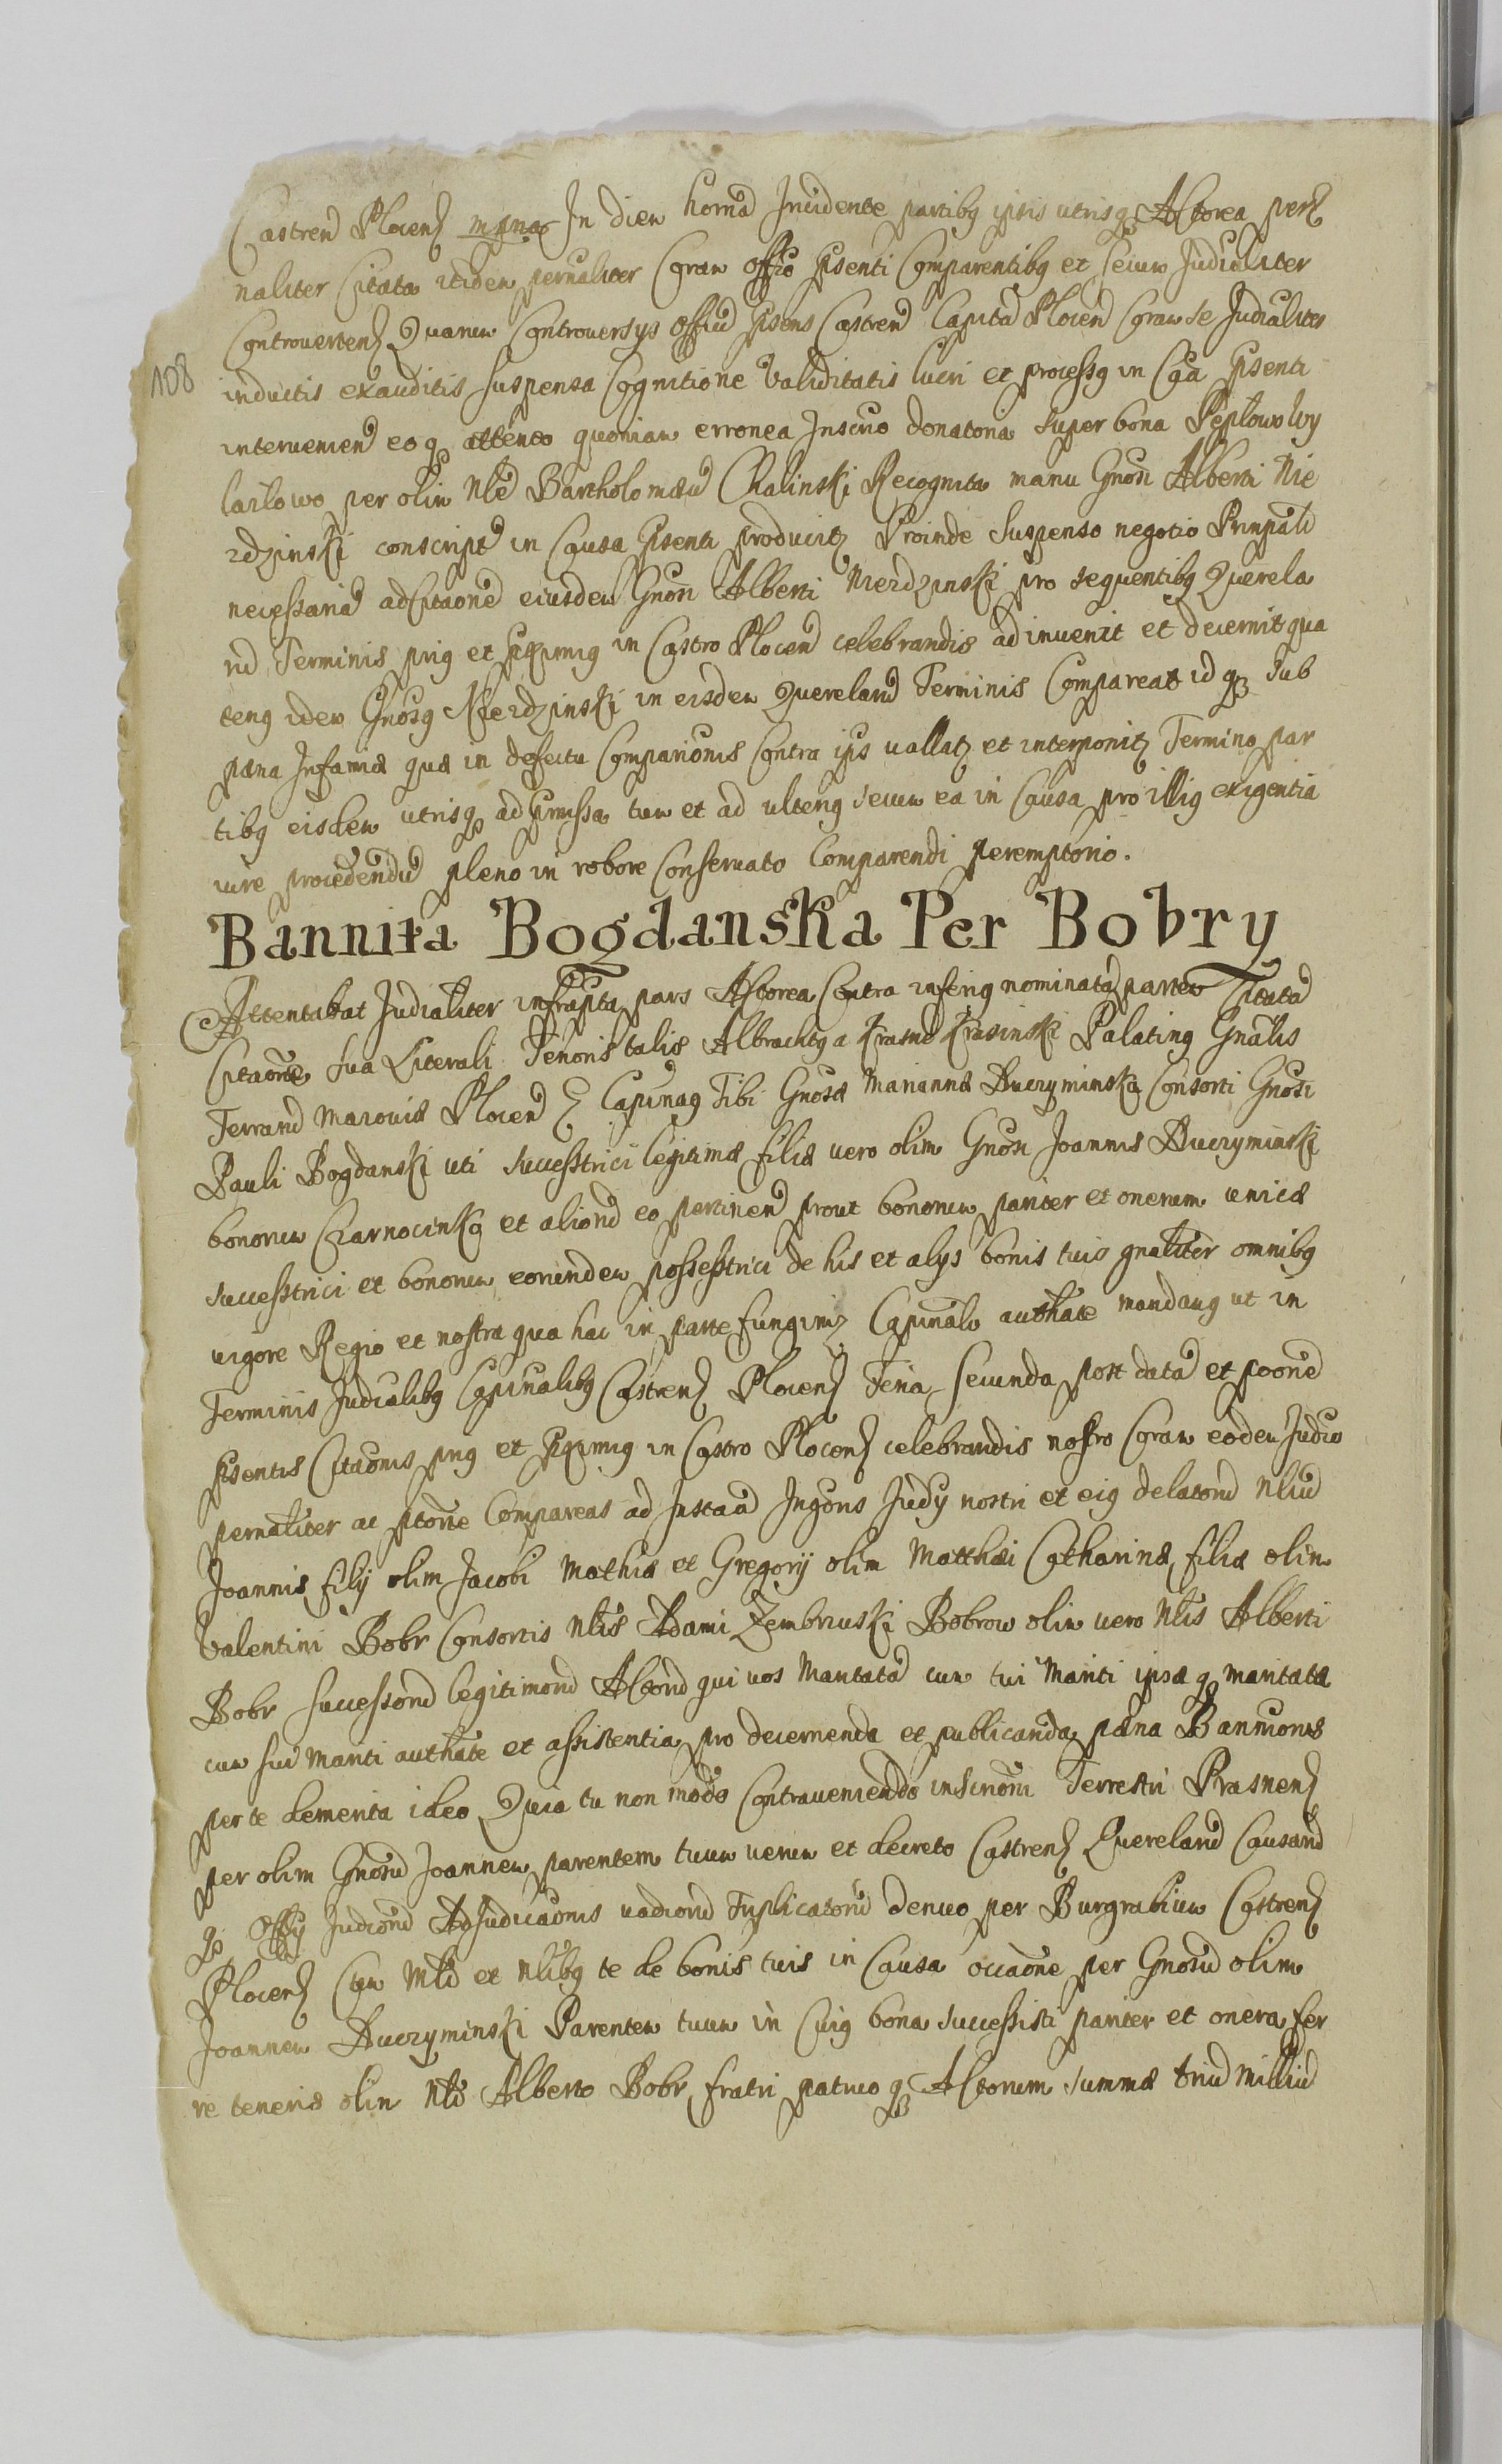 Castren Plocen mpna In diem hornã Incidente partibq ipsis utrisq Actorea per
naliter Citata itidem pernaliter Coram Offio Psenti Comparentibq et secum Judialiter
Controverten Quarum Controversys Offiu Psens Castren Capita Plocen Coram se Judialiter
108
inductis exauditis suspensa Cognitione validitatis lucri et processq in Cãa Psenti
intervenien eo q attento quoniam erronea Inscrio donatoria super bona Peplowo Wy
lazlowo per olim Nle Bartholomæu Chalinski Recognita manu Gnosi Alberti Nie
rdzinski conscript in Causa Psenti producitz Proinde suspenso negotio Prinpali
necessariã adCitaone eiusdem Gnosi Alberti Nierdzinski pro sequentibq Querela
ru Terminis priq et Pxquimiq in Castro Plocen celebrandis adinvenit et decernit qua
tenq idem Gnosq Nierdzinski in eisdem Querelaru Terminis Compareat idq sub
pæna Infamiæ quæ in defectu Comparionis Contra ips vallatz et interponitz Termino par
tibq eisdem utrisq ad Pmissa tum et ad ulterq secum ea in Causa pro illiq exigentia
iure procedendu pleno in robore Conservato Comparendi peremptorio.
Bannita Bogdanska Per Bobry
Attentabat Judialiter infrapta pars Actorea Contra inferiq nominatã partem Citatã
Citaone sua Literali Tenoris talis Albrachtq a Krasne Krasinski Palatinq Gnalis
Terraru Mazoviæ Plocen & Capinaq Tibi Gnosæ Mariannæ Duczyminska Consorti Gnosi
Pauli Bogdanski uti successtrici legitimæ filiæ vero olim Gnosi Joannis Duczyminski
bonorum Czarnocinko et alioru eo pertinen prout bonorum pariter et onerum unicæ
successtrici et bonorum eorundem possesstrici de his et alys bonis tuis gnaliter omnibq
vigore Regio et nostra qua hac in parte fungimz Capinali authate mandamq ut in
Terminis Judialibq Capinalibq Castren Plocen Feria Secunda post datã et poone
Psentis Citaonis priq et Pxquimiq in Castro Plocen celebrandis nostro Coram eodem Judio
pernaliter ac ptorie Compareas ad Instaã Ingoris Judy nostri et eiq delatoru Nliu
Joannis fily olim Jacobi Mathiæ et Gregorij olim Matthæi Catharinæ filiæ olim
Valentini Bobr Consortis Nlis Adami Zembrzuski Bobrow olim vero Nlis Alberti
Bobr Successoru legitimoru Actoru qui vos Maritatã cum tui Mariti ipsa q maritata
cum sui Mariti authate et assistentia pro decernenda et publicanda pæna Bannionis
per te demerita ideo Quia tu non modo Contraveniendo inscrioni Terrestri Prasnen
per olim Gnosu Joannem parentem tuum verum et decreto Castren Querelaru Causaru
q Offy Judioru Adjudicaonis vadioru Triplicatoru denuo per Burgrabium Castren
Plocen Cum Mlti et Nlibq te de bonis tuis in Causa occaone per Gnosu olim
Joannem Duczyminski Parentem tuum in Cuiq bona successisti pariter et onera fer
re teneris olim Nli Alberto Bobr fratri patruo q Actorum summæ triu milliu